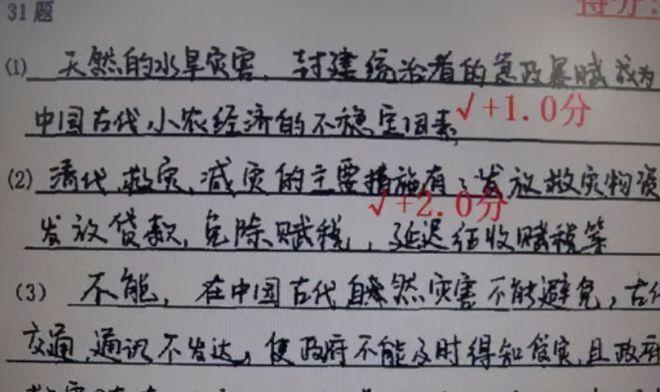 31题
得分:
(1) 天然的水旱灾害，封建统治者的急政暴赋成为
√+1.0分
中国古代小农经济的不稳定因素
(2) 清代救灾、减灾的主要措施有：发放救灾物资
√+2.0分
发放贷款，免除赋税，延迟征收赋税等
(3) 不能，在中国古代自然灾害不能避免，古代
交通、通讯不发达，使政府不能及时得知受灾，且政府